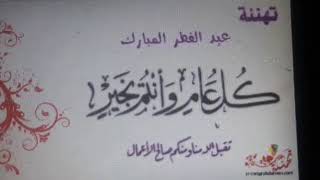 تهنئة
عيد الفطر المبارك
كل عام وأنتم بخير
تقبل الله منا ومنكم صالح الأعمال